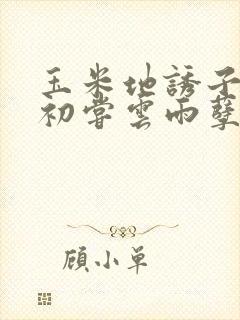 玉米地誘子
初嘗雲雨孽
顧小單